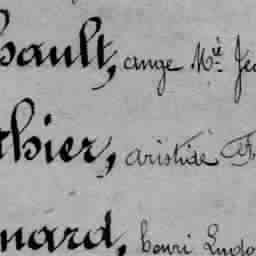 bault, ange Mie Jea
thier, aristide
nard, henri Ludo